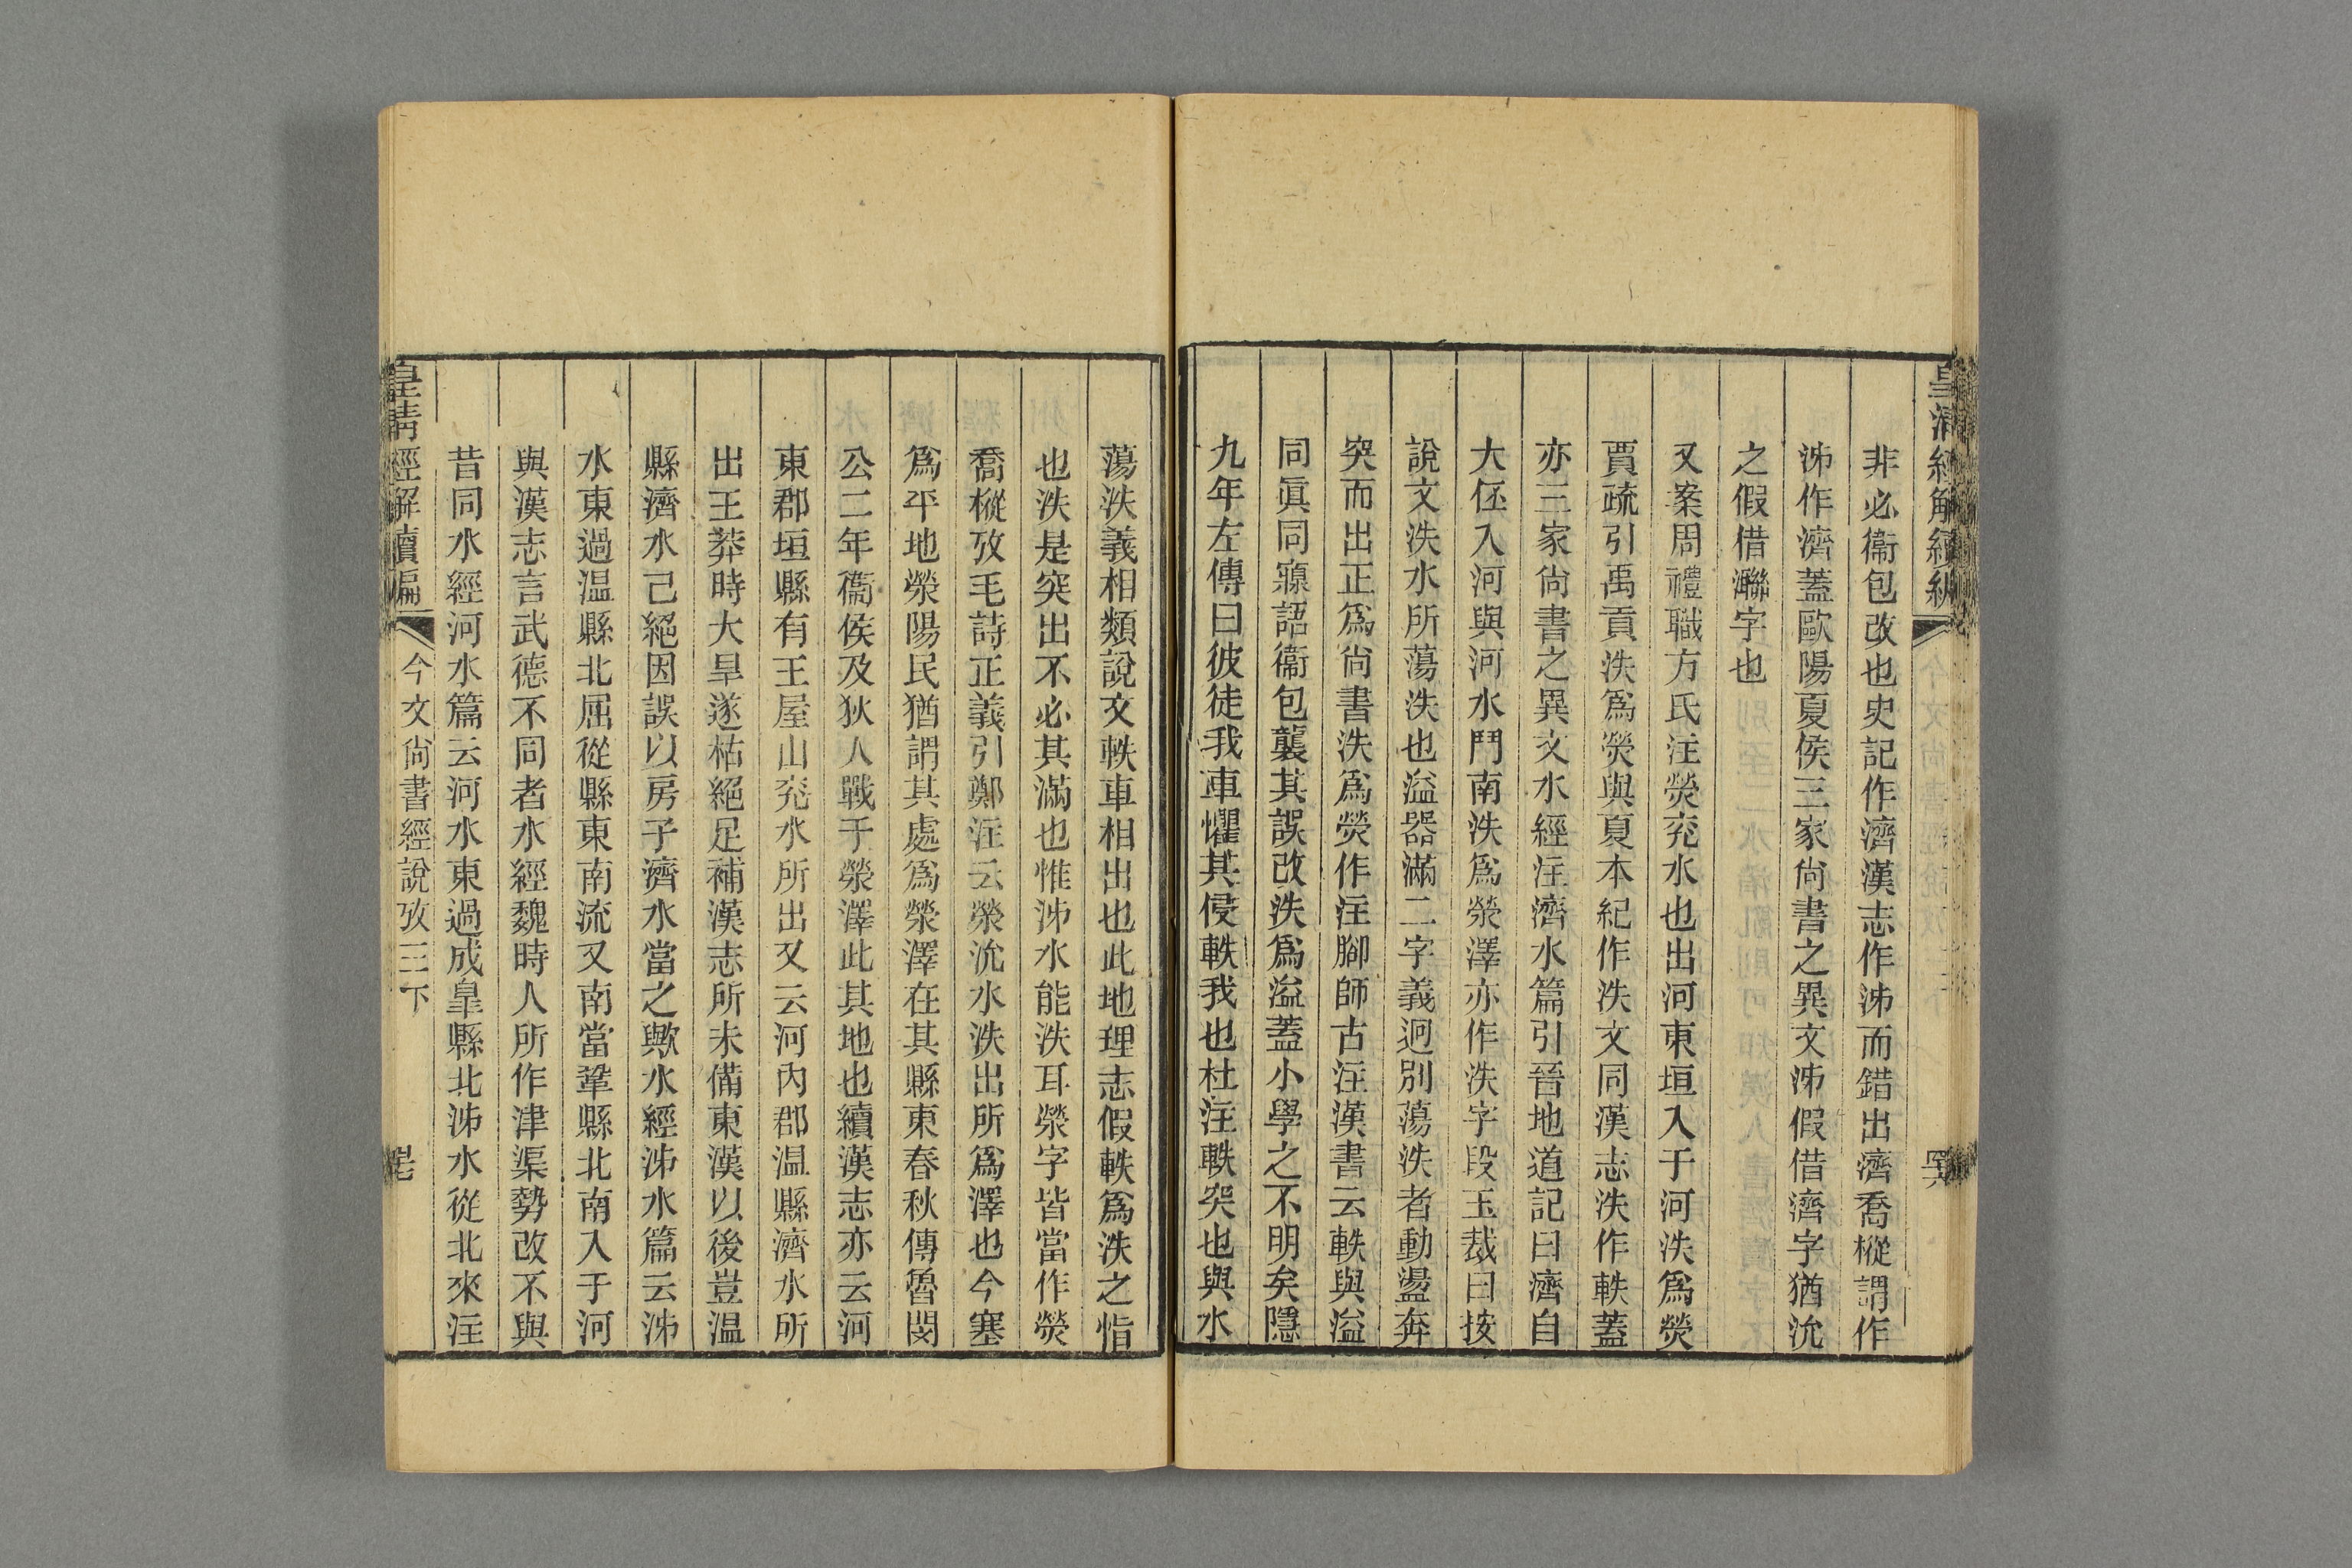 皇清經解續編
非必衞包改也史記作濟漢志作泲而錯出濟喬樅謂作
泲作濟蓋歐陽夏侯三家尙書之異文泲假借濟字猶沇
之假借㶕字也
又案周禮職方氏注熒兖水也出河東垣入于河泆爲熒
賈疏引禹貢泆爲熒與夏本紀作泆文同漢志泆作軼蓋
亦三家尙書之異文水經注濟水篇引晉地道記曰濟自
大伾入河與河水鬥南泆爲滎澤亦作泆字段玉裁曰按
說文泆水所蕩泆也溢器滿二字義迥別蕩泆者動盪奔
突而出正爲尙書泆爲熒作注腳師古注漢書云軼與溢
同眞同寱語衞包襲其誤改泆爲溢蓋小學之不明矣隱
九年左傳曰彼徒我車懼其侵軼我也杜注軼突也與水
蕩泆義相類說文軼車相出也此地理志假軼爲泆之恉
也泆是突出不必其滿也惟泲水能泆耳滎字皆當作熒
喬樅攷毛詩正義引鄭注云滎沇水泆出所爲澤也今塞
爲平地滎陽民猶謂其處爲滎澤在其縣東春秋傳魯閔
公二年衞侯及狄人戰于滎澤此其地也續漢志亦云河
東郡垣縣有王屋山兖水所出又云河內郡温縣濟水所
出王莽時大旱遂枯絕足補漢志所未備東漢以後豈温
縣濟水已絕因誤以房子濟水當之歟水經泲水篇云泲
水東過温縣北屈從縣東南流又南當鞏縣北南入于河
與漢志言武德不同者水經魏時人所作津渠勢改不與
昔同水經河水篇云河水東過成皐縣北泲水從北來注
皇清經解續編
今文尙書經說攷三下